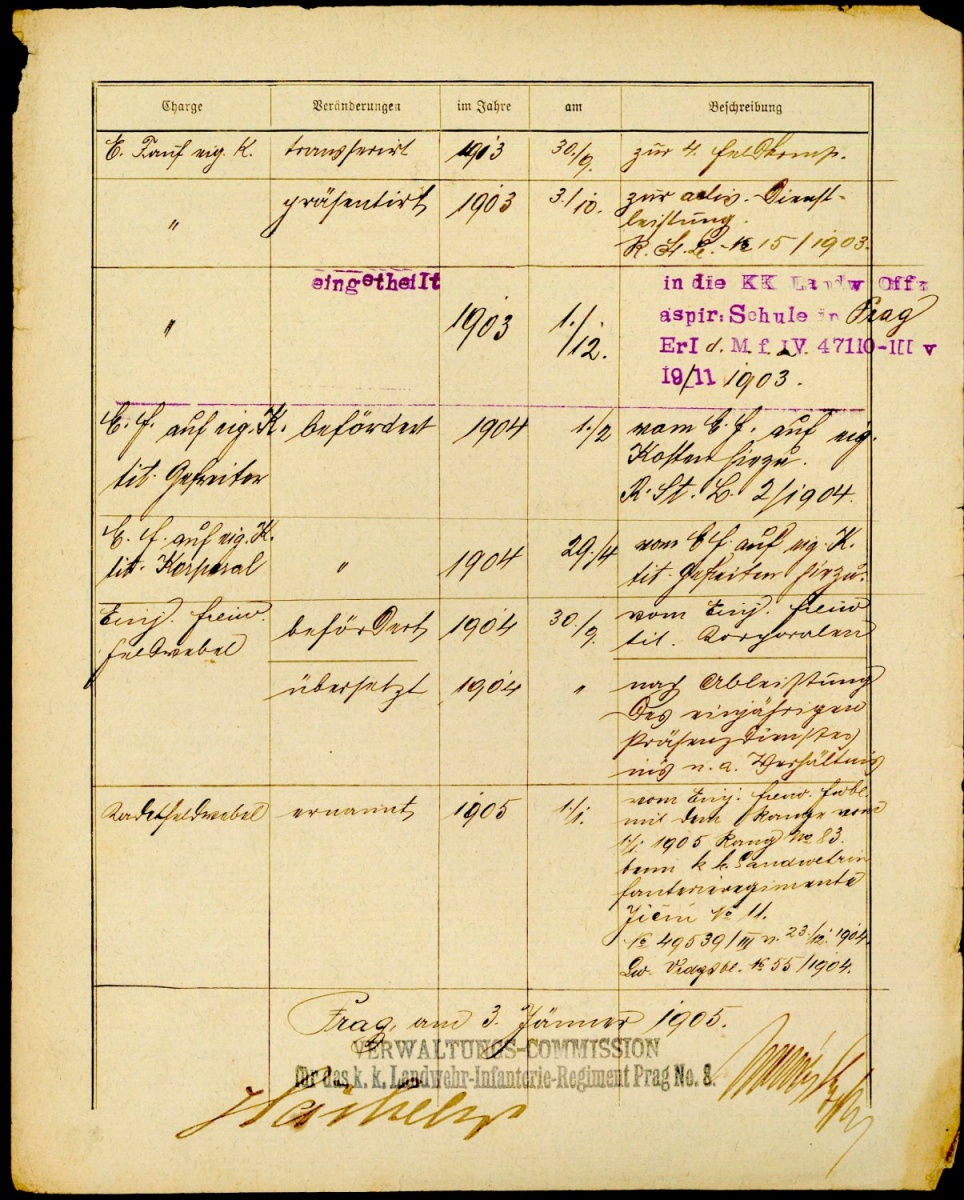 Charge Veränderungen im Jahre am Beschreibung
E. F. auf eig. K. transferirt 1903 30./9. zur 4. Feldkomp.
" präsentirt 1903 3./10. zur activ. Dienst-
leistung.
R. St. B. № 15/1903.
eingetheilt in die KK Landw Offz
" 1903 1./12. aspir: Schule in Prag
Erl d. M. f. LV. 47110-III v
19/11 1903.
E. F. auf eig. K. befördert 1904 1./2 vom E. F. auf eig.
tit. Gefreiter Kosten hiezu.
R. St. B. 2/1904.
E. F. auf eig. K. " 1904 29./4 vom E. F. auf eig. K.
tit. Korporal tit. Gefreiten hiezu.
Einj. freiw. befördert 1904 30./9. vom Einj. freiw
Feldwebel tit. Korporalen
übersetzt 1904 " nach Ableistung
des einjährigen
Präsenzdienstes
ins n. a. Verhältnis
Kadetfeldwebel ernannt 1905 1./1. vom Einj. freiw. Fwbl.
mit dem Range vom
1/1 1905 Rang № 83.
beim k. k. Landwehrin
fanterieregimente
Jičín № 11.
№ 49539/III v. 23./12. 1904.
Lw. Vdgsbl. № 55/1904.
Prag, am 3. Jänner 1905.
VERWALTUNGS-COMMISSION
für das k. k. Landwehr-Infanterie-Regiment Prag No. 8.